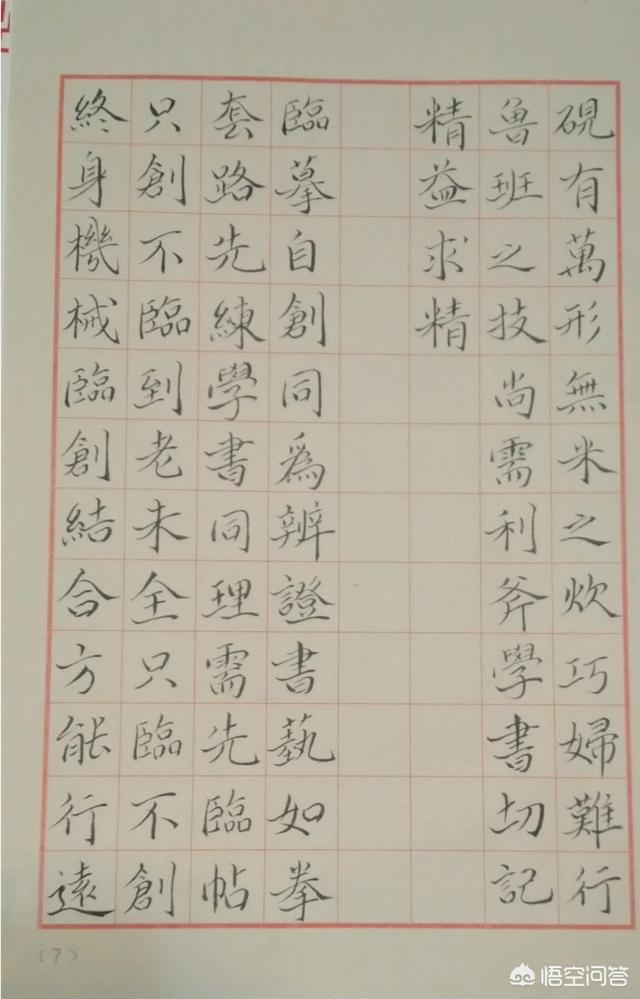 硯有萬形無米之炊巧婦難行
魯班之技尚需利斧學書切記
精益求精
臨摹自創同爲辨證書藝如拳
套路先練學書同理需先臨帖
只創不臨到老未全只臨不創
終身機械臨創結合方能行遠
(7)
悟空问答